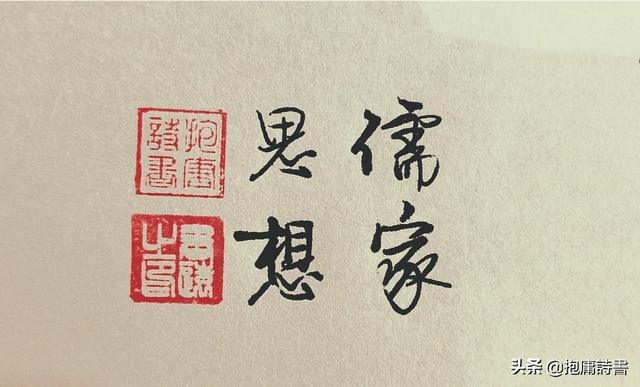 儒家
思想
抱庸
詩書
之印
头条 @抱庸詩書